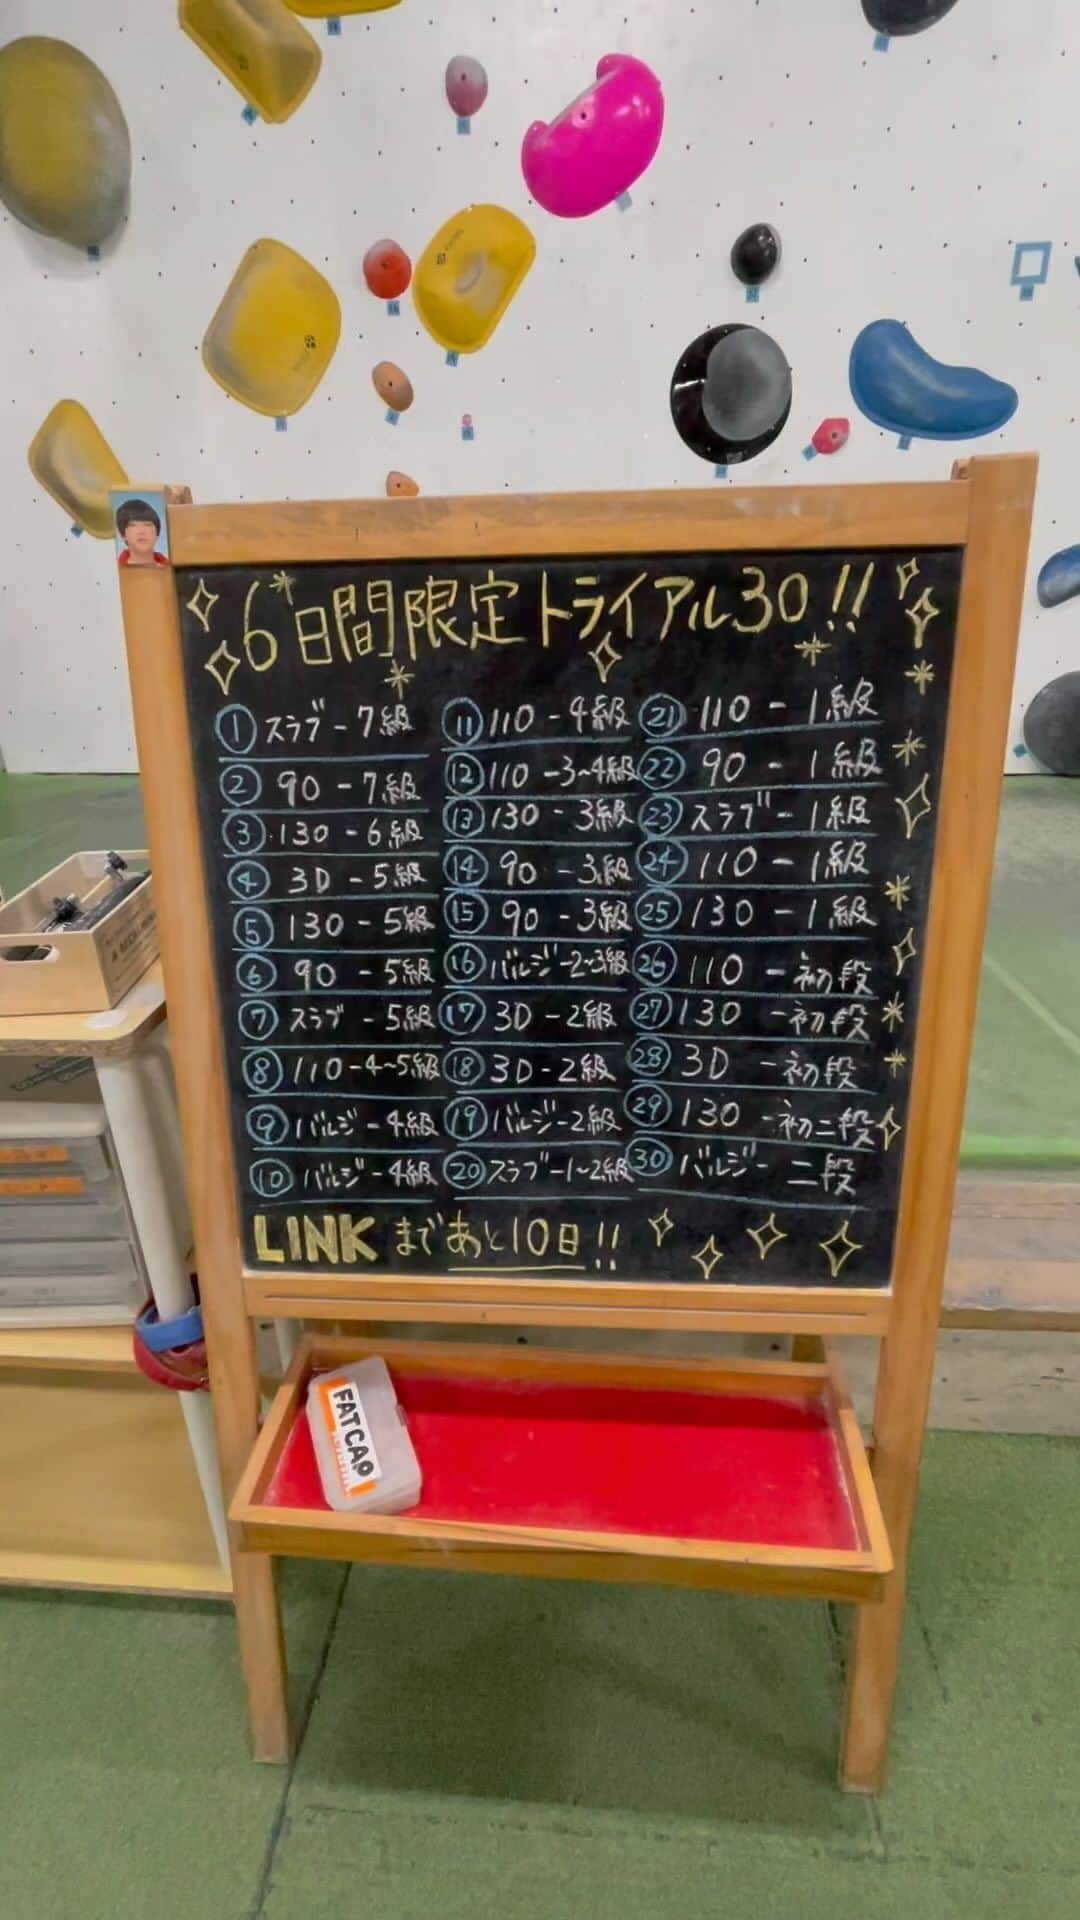 6日間限定トライアル30!!
① スラブ - 7級
② 90 - 7級
③ 130 - 6級
④ 3D - 5級
⑤ 130 - 5級
⑥ 90 - 5級
⑦ スラブ - 5級
⑧ 110 - 4~5級
⑨ バルジ - 4級
⑩ バルジ - 4級
⑪ 110 - 4級
⑫ 110 - 3~4級
⑬ 130 - 3級
⑭ 90 - 3級
⑮ 90 - 3級
⑯ バルジ - 2~3級
⑰ 3D - 2級
⑱ 3D - 2級
⑲ バルジ - 2級
⑳ スラブ - 1~2級
㉑ 110 - 1級
㉒ 90 - 1級
㉓ スラブ - 1級
㉔ 110 - 1級
㉕ 130 - 1級
㉖ 110 - 初段
㉗ 130 - 初段
㉘ 3D - 初段
㉙ 130 - 初二段
㉚ バルジ - 二段
LINKまであと10日!!
FATCAP